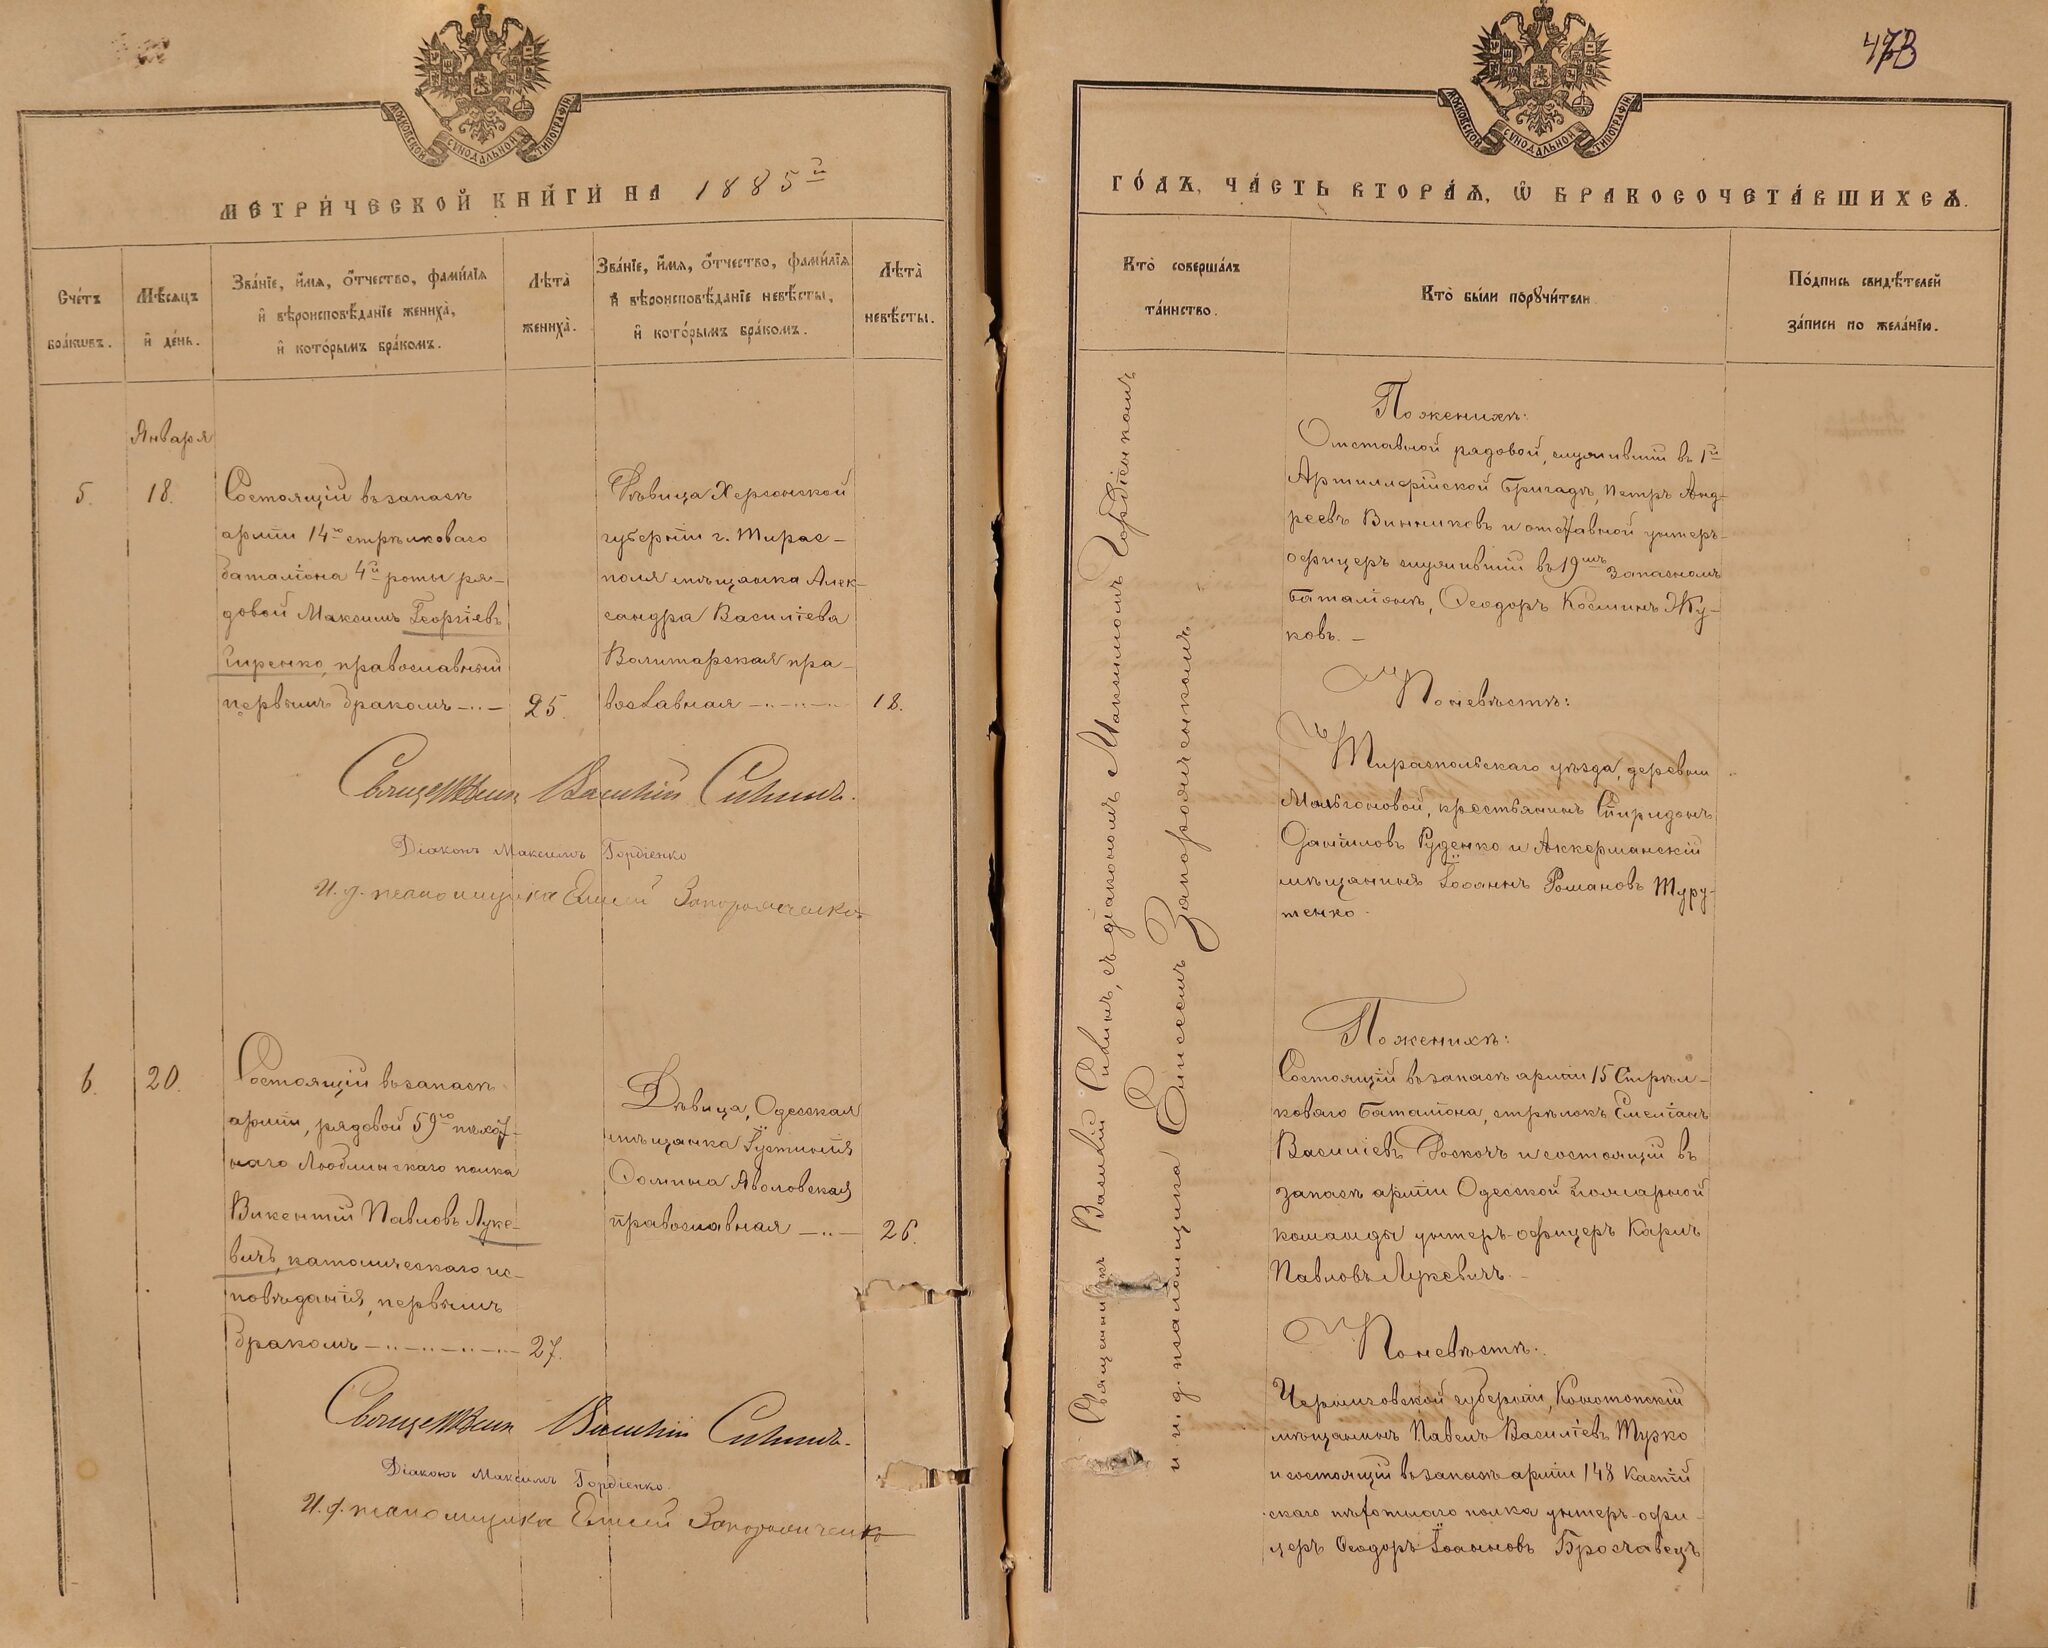 МОСКОВСКОЙ СУНОДАЛЬНОЙ ТИПОГРАФІИ
МЕТРИЧЕСКОЙ КНИГИ НА 1885й
Счетъ браковъ.
Мѣсяцъ и день.
Званіе, имя, отчество, фамилія
и вѣроисповѣданіе жениха,
и которымъ бракомъ.
Лѣта
жениха.
Званіе, имя, отчество, фамилія
и вѣроисповѣданіе невѣсты,
и которымъ бракомъ.
Лѣта
невѣсты.
Января
5.
18.
Состоящій въ запасѣ
арміи 14го стрѣлковаго
баталіона 4й роты ря-
довой Максимъ Георгіевъ
Гиренко, православный
первымъ бракомъ
25.
Дѣвица Херсонской
губерніи г. Тирас-
поля мѣщанка Алек-
сандра Василіева
Волитарская пра-
вославная
18.
Священникъ Василій Сивинъ.
Діаконъ Максимъ Гордіенко
И. д. псаломщика Елисей Запорожченко
6.
20.
Состоящій въ запасѣ
арміи, рядовой 59го пѣхот-
наго Люблинскаго полка
Викентій Павловъ Луке-
вичъ, католическаго ис-
повѣданія, первымъ
бракомъ
27.
Дѣвица, Одесская
мѣщанка Іустинія
Фомина Яволовская
православная
26.
Священникъ Василій Сивинъ.
Діаконъ Максимъ Гордіенко.
И. д. псаломщика Елисей Запорожченко
МОСКОВСКОЙ СУНОДАЛЬНОЙ ТИПОГРАФІИ
ГОДЪ, ЧАСТЬ ВТОРАЯ, Ѡ БРАКОСОЧЕТАВШИХСЯ.
Кто совершалъ
таинство.
Кто были поручители.
Подпись свидѣтелей
записи по желанію.
Священникъ Василій Сивинъ, съ діакономъ Максимомъ Гордіенкомъ
и и. д. псаломщика Елисеемъ Запорожченкомъ.
По женихѣ:
Отставной рядовой, служившій въ 1й
Артиллерійской бригадѣ, Петръ Анд-
реевъ Винниковъ и отставной унтеръ-
офицеръ служившій въ 19мъ запасномъ
баталіонѣ, Ѳеодоръ Косминъ Жу-
ковъ.
По невѣстѣ:
Тираспольскаго уѣзда, деревни
Мальгоновой, крестьянинъ Спиридонъ
Даніиловъ Руденко и Аккерманскій
мѣщанинъ Іоаннъ Романовъ Туру-
тенко.
По женихѣ:
Состоящій въ запасѣ арміи 15 Стрѣл-
коваго баталіона, стрѣлокъ Емеліанъ
Василіевъ Роскочъ и состоящій въ
запасѣ арміи Одесской пожарной
команды унтеръ-офицеръ Карлъ
Павловъ Лукевичъ.
По невѣстѣ:
Черниговской губерніи, Конотопскій
мѣщанинъ Павелъ Василіевъ Турко
и состоящій въ запасѣ арміи 148 Каспій
скаго пѣхотнаго полка унтеръ-офи-
церъ Ѳеодоръ Іоанновъ Брославецъ